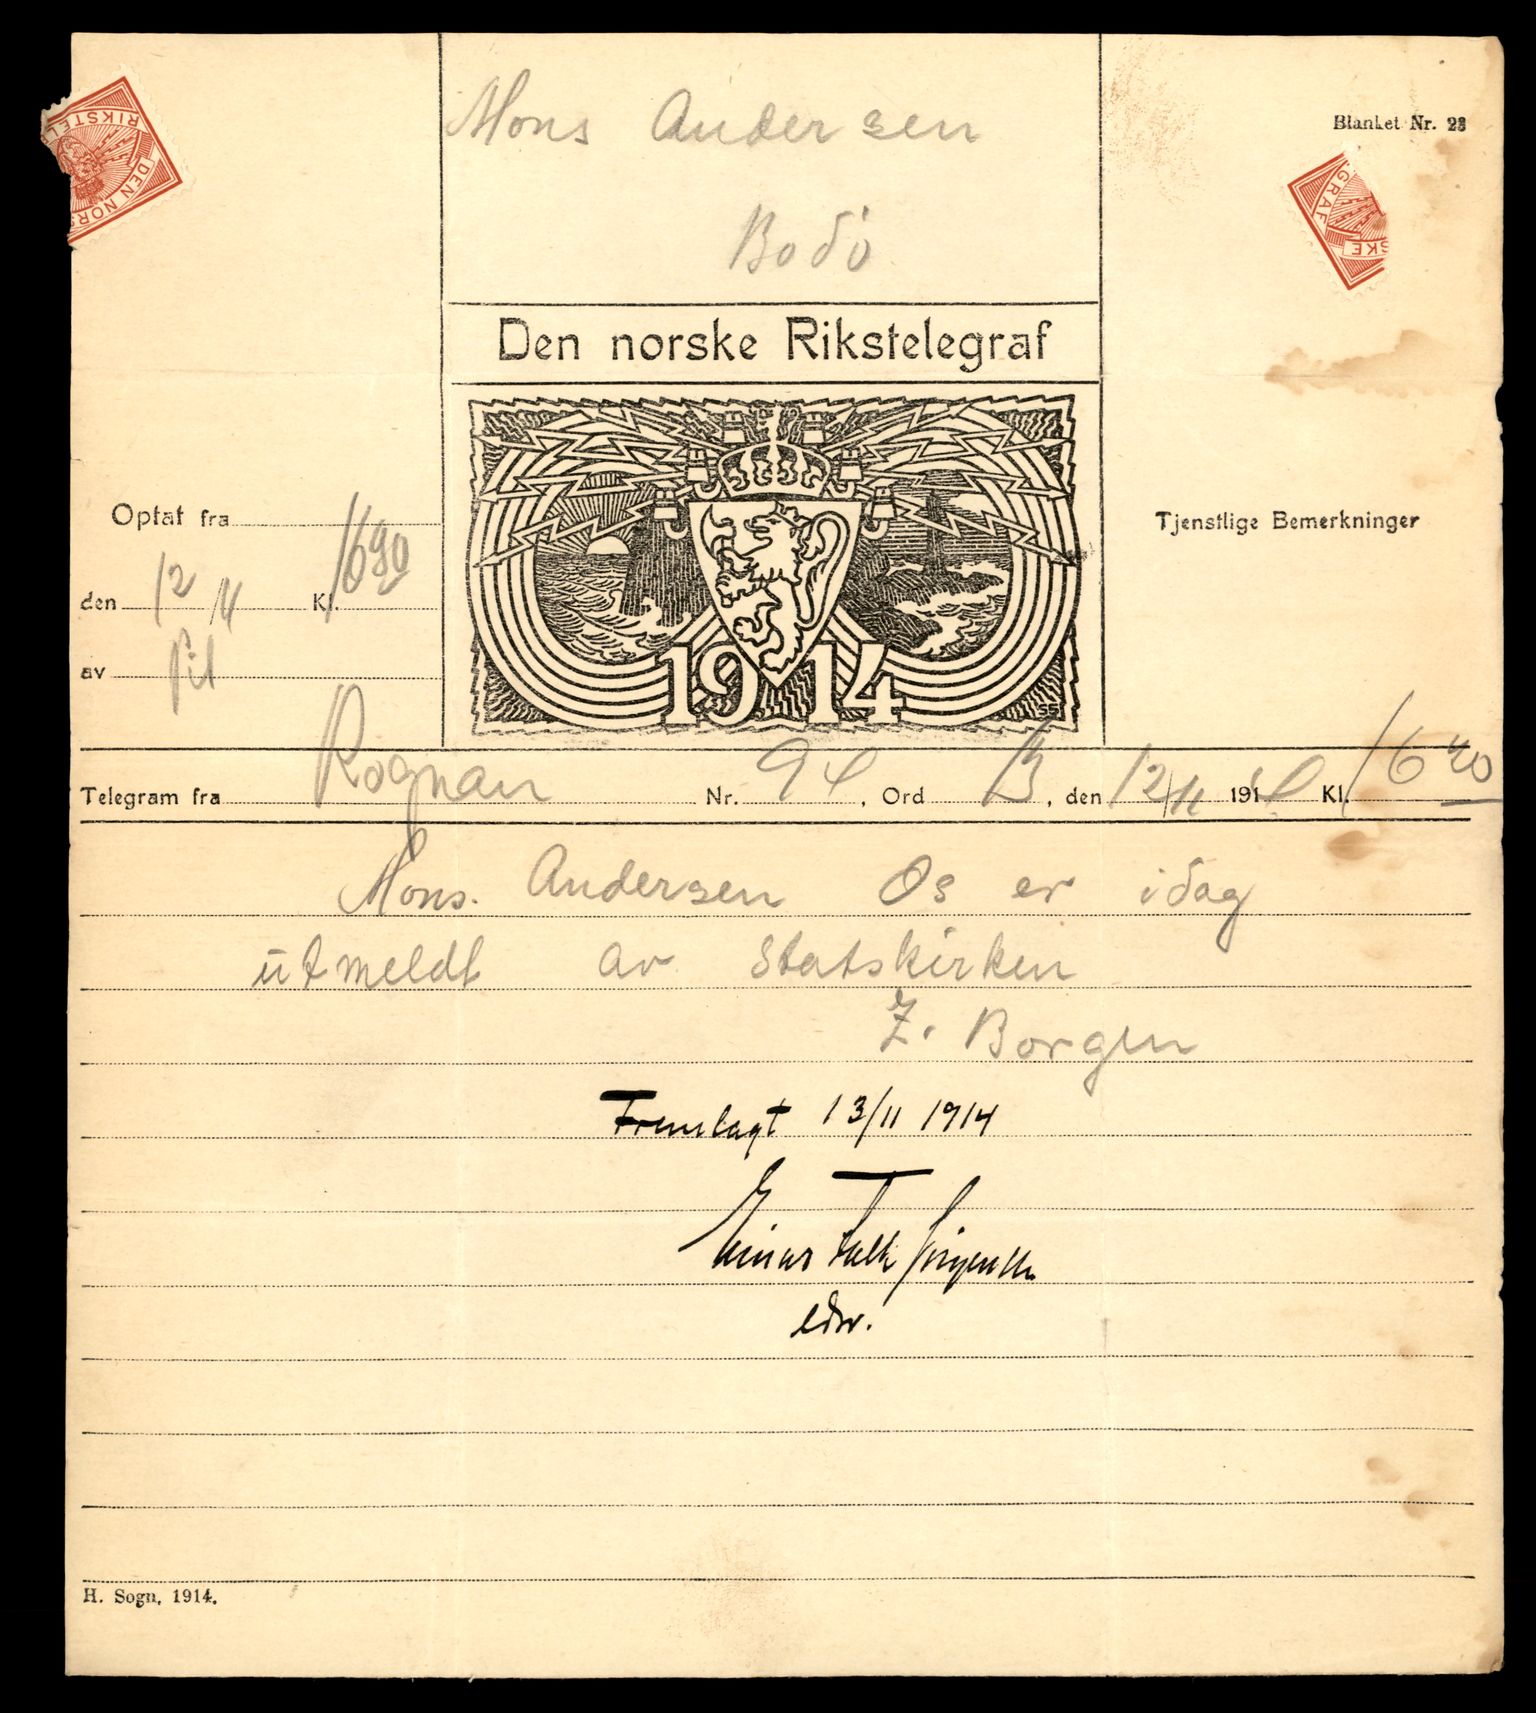 Mons Andersen
Bodö
Blanket Nr. 23
DEN NORS
RIKSTEL
GRAF
SKE
Den norske Rikstelegraf
Optat fra
den 12/11 Kl. 16
av
1914
SS
Tjenstlige Bemerkninger
Telegram fra Rognan Nr. 94, Ord 13, den 12/11 1914 Kl. 16 40
Mons. Andersen Os er idag
utmeldt av Statskirken
Z. Borgen
Fremlagt 13/11 1914
Einar Falk
H. Sogn, 1914.